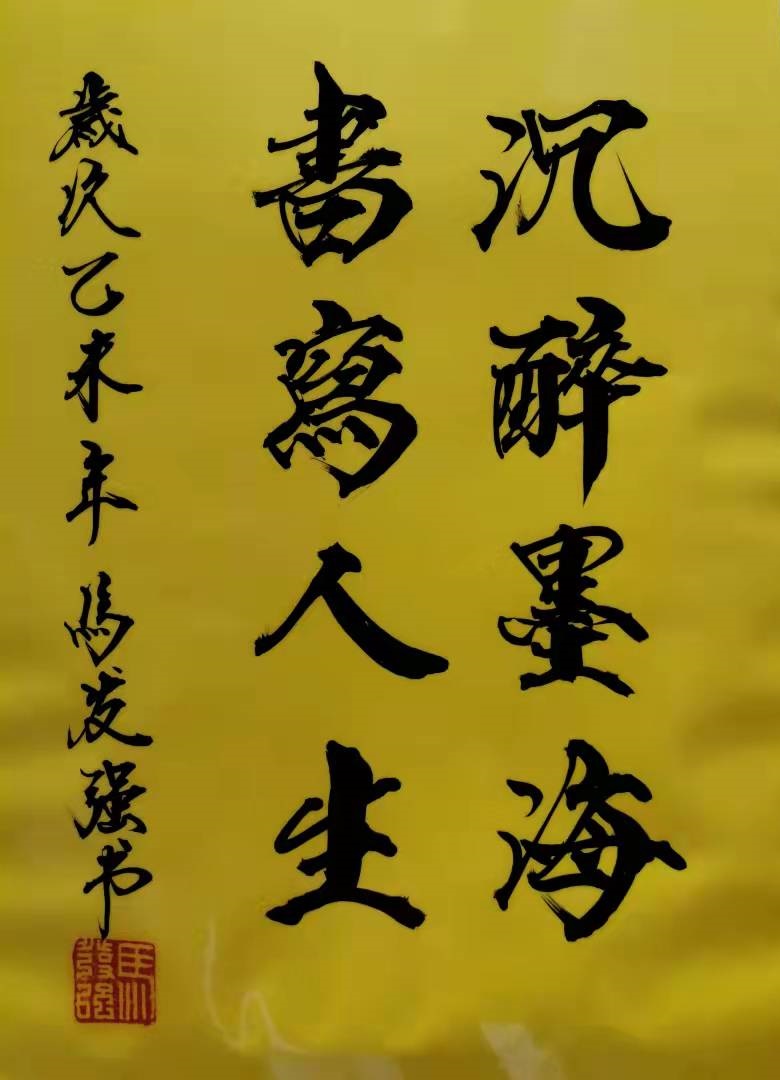 沉醉墨海
書寫人生
歲次乙未年馮发强书